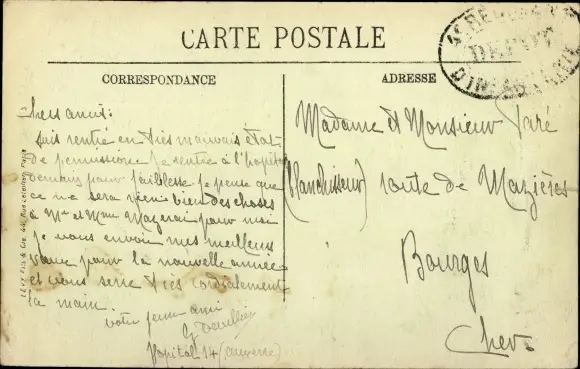 CARTE POSTALE
CORRESPONDANCE
ADRESSE
DEPOT
D'INFANTERIE
chers amis:
suis rentré en très mauvais état
de permission je rentre à l'hopital
demain pour faiblesse je pense que
ce ne sera rien bien des choses
à Mr et Mme pour moi
je vous envoie mes meilleurs
vœux pour la nouvelle année
et vous serre très cordialement
la main.
votre jeune ami
Hopital 14
Madame et Monsieur Paré
(blanchisseur) route de Mazières
Bourges
Cher
LEVY FILS & Cie, 44, Rue Letellier, Paris